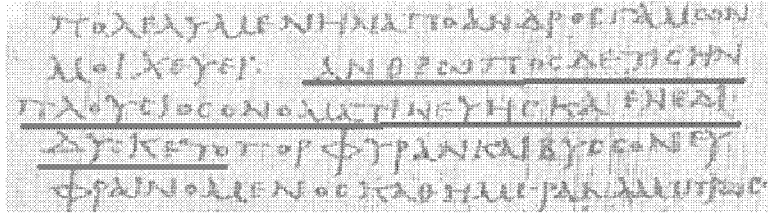 ΠΟΛΕΛΥΜΕΝΗΝΑΠΟΑΝΔΡΟϹΓΑΜΩΝ
ΜΟΙΧΕΥΕΙ· ΑΝΘΡΩΠΟϹΔΕΤΙϹΗΝ
ΠΛΟΥϹΙΟϹΟΝΟΜΑΤΙΝΕΥΗϹΚΑΙΕΝΕΔΙ
ΔΥϹΚΕΤΟΠΟΡΦΥΡΑΝΚΑΙΒΥϹϹΟΝΕΥ
ΦΡΑΙΝΟΜΕΝΟϹΚΑΘΗΜΕΡΑΝΛΑΜΠΡΩϹ